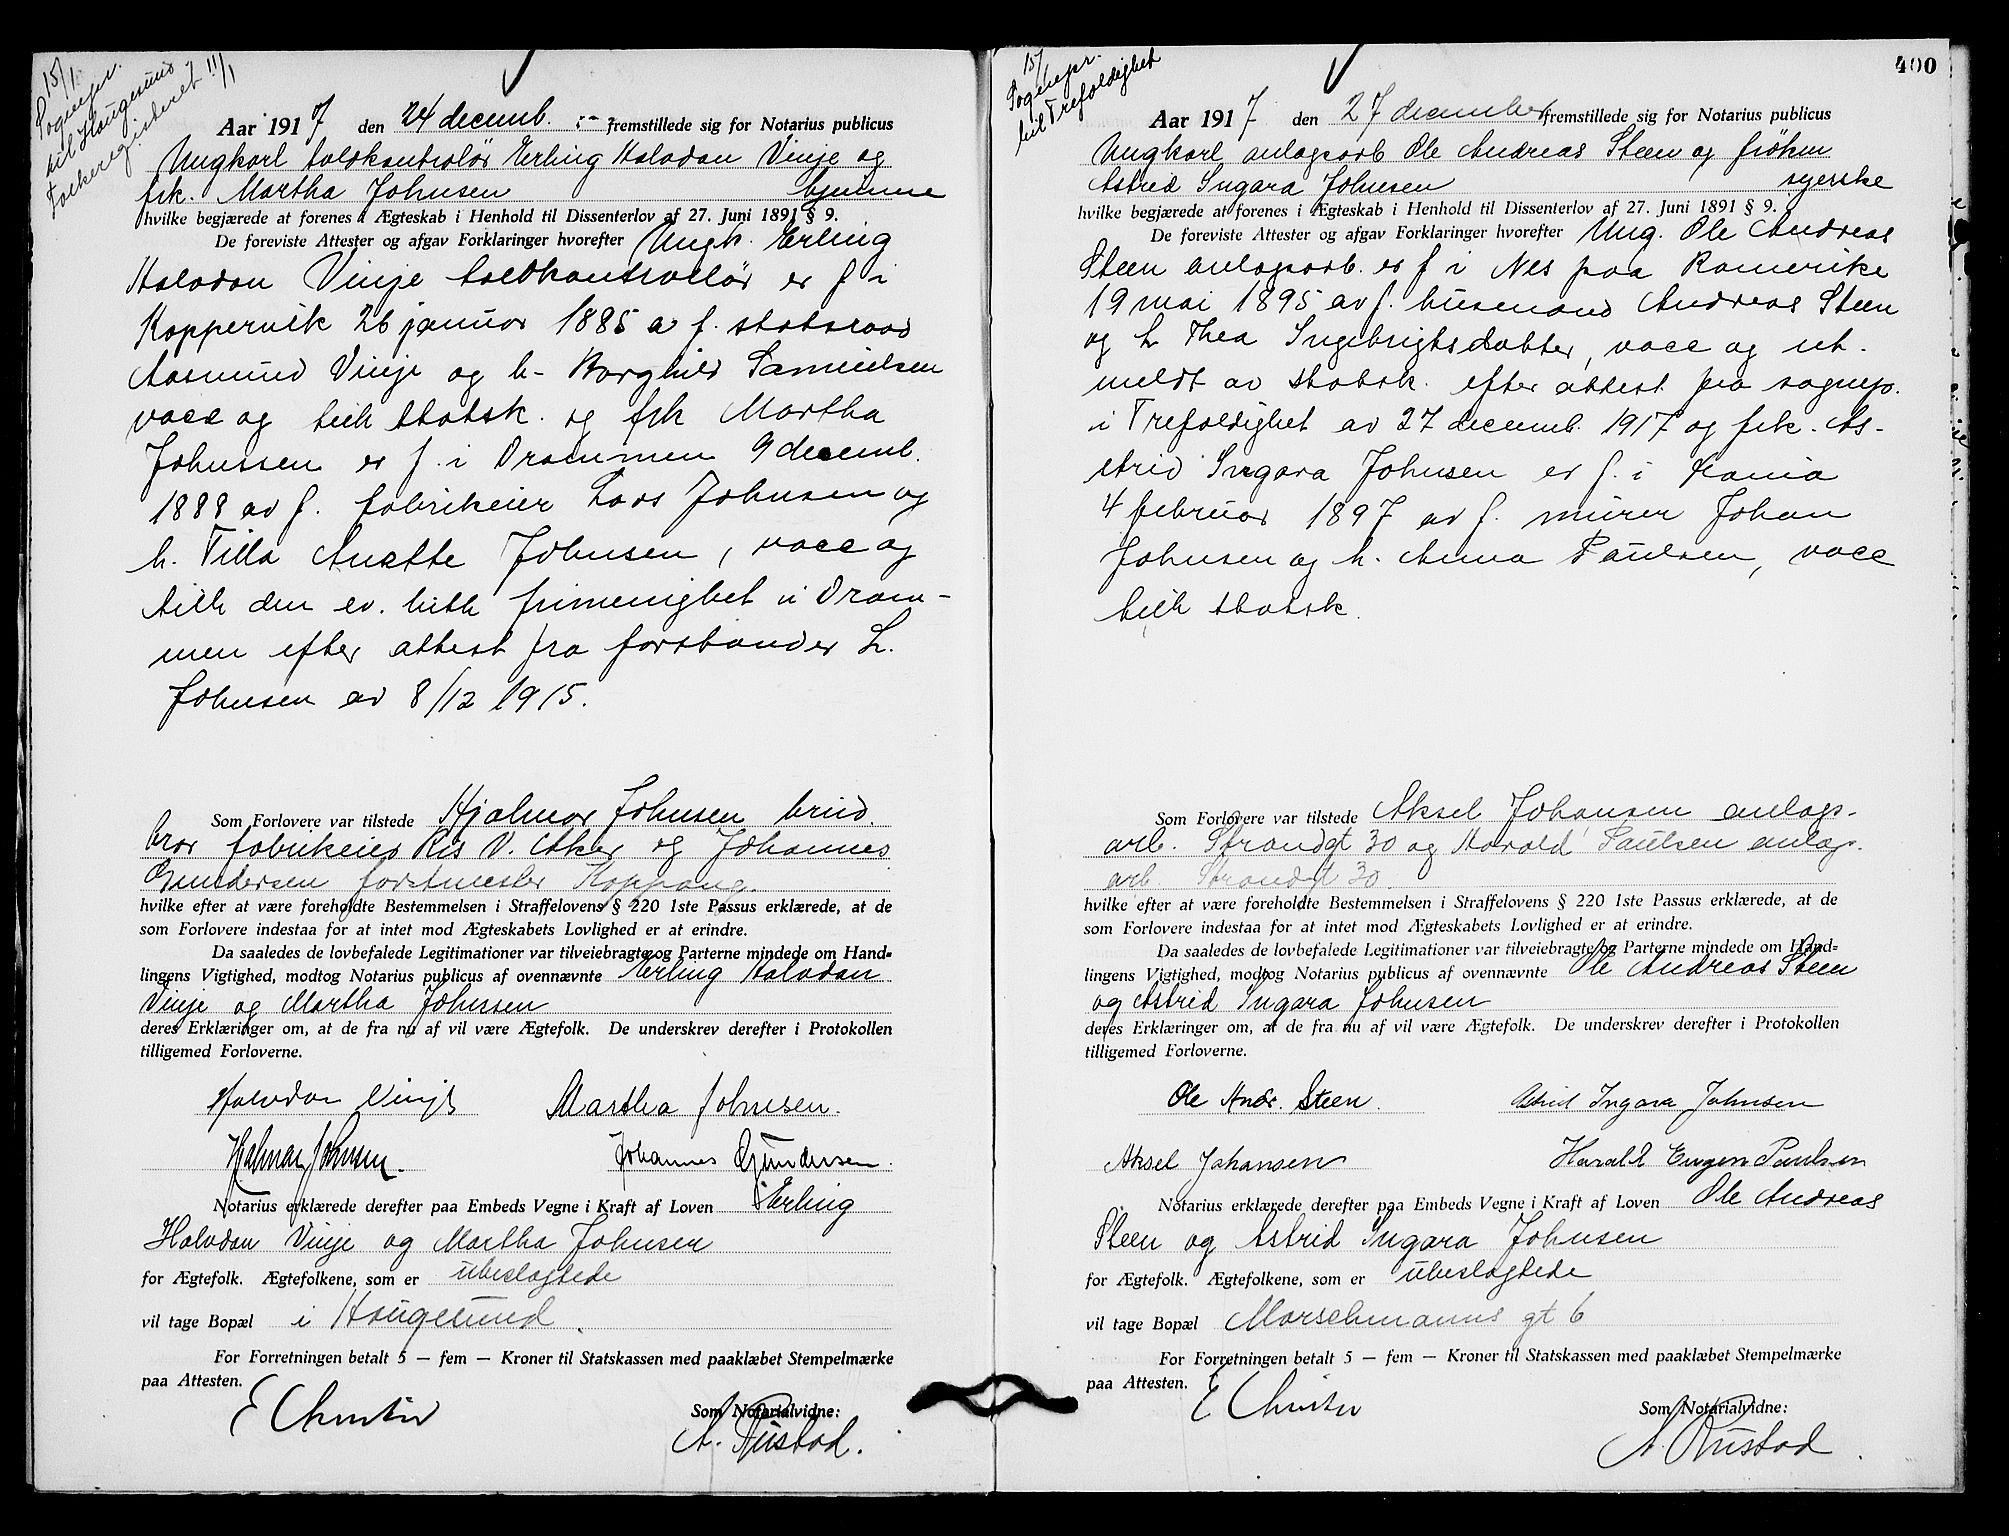 15/1
Sogenpr.
til Haugesund
Folkeregisteret 11/1
Aar 1917 den 24 decemb. :-- fremstillede sig for Notarius publicus
Ungkarl toldkontrolör Erling Halvdan Vinje og
frk. Martha Johnsen hjemme
hvilke begjærede at forenes i Ægteskab i Henhold til Dissenterlov af 27. Juni 1891 § 9.
De foreviste Attester og afgav Forklaringer hvorefter Ungk. Erling
Halvdan Vinje toldkontrollör er f i
Koppervik 26 januar 1885 av f. statsraad
Aasmund Vinje og h- Borghild Samuelsen
vacc og tilh statsk. og frk Martha
Johnssen er f. i Drammen 9 decemb.
1888 av f. fabrikeier Lars Johnsen og
h. Tilla Anette Johnsen, vacc og
tilh den ev. luth frimenighet i Dram-
men efter attest fra forstander L.
Johnsen av 8/12 1915.
Som Forlovere var tilstede Hjalmar Johnsen brud.
bror fabrikeier Ris V. Aker og Johannes
Gundersen forstmester Koppang.
hvilke efter at være foreholdte Bestemmelsen i Straffelovens § 220 1ste Passus erklærede, at de
som Forlovere indestaa for at intet mod Ægteskabets Lovlighed er at erindre.
Da saaledes de lovbefalede Legitimationer var tilveiebragte og Parterne mindede om Hand-
lingens Vigtighed, modtog Notarius publicus af ovennævnte Erling Halvdan
Vinje og Martha Johnsen
deres Erklæringer om, at de fra nu af vil være Ægtefolk. De underskrev derefter i Protokollen
tilligemed Forloverne.
Halvdan Vinje Martha Johnsen.
Hjalmar Johnsen. Johannes Gundersen.
Notarius erklærede derefter paa Embeds Vegne i Kraft af Loven Erling
Halvdan Vinje og Martha Johnsen
for Ægtefolk. Ægtefolkene, som er ubeslægtede
vil tage Bopæl i Haugesund.
For Forretningen betalt 5 — fem — Kroner til Statskassen med paaklæbet Stempelmærke
paa Attesten.
E Christie
Som Notarialvidne:
A. Rustad.
400
15/1
Sogenpr.
til Trefoldighet
Aar 1917 den 27 december fremstillede sig for Notarius publicus
Ungkarl anlagsarb Ole Andreas Steen og fröken
Astrid Ingara Johnsen syerske
hvilke begjærede at forenes i Ægteskab i Henhold til Dissenterlov af 27. Juni 1891 § 9.
De foreviste Attester og afgav Forklaringer hvorefter Ung. Ole Andreas
Steen anlagsarb. er f i Nes paa Romerike
19 mai 1895 av f. husmand Andreas Steen
og h Thea Ingebrigtsdatter, vacc og ut-
meldt av statsk. efter attest fra sognep.
i Trefoldighet av 27 decemb. 1917 og frk. As-
trid Ingara Johnsen er f. i Krania
4 februar 1897 av f. murer Johan
Johnsen og h. Anna Paulsen, vacc
tilh statsk.
Som Forlovere var tilstede Aksel Johansen anlags-
arb. Strandgt 30 og Harald Paulsen anlag-
arb. Strandgt 30.
hvilke efter at være foreholdte Bestemmelsen i Straffelovens § 220 1ste Passus erklærede, at de
som Forlovere indestaa for at intet mod Ægteskabets Lovlighed er at erindre.
Da saaledes de lovbefalede Legitimationer var tilveiebragte og Parterne mindede om Hand-
lingens Vigtighed, modtog Notarius publicus af ovennævnte Ole Andreas Steen
og Astrid Ingara Johnsen
deres Erklæringer om, at de fra nu af vil være Ægtefolk. De underskrev derefter i Protokollen
tilligemed Forloverne.
Ole Andr. Steen. Astrid Ingara Johnsen
Aksel Johansen Harald Eugen Paulsen
Notarius erklærede derefter paa Embeds Vegne i Kraft af Loven Ole Andreas
Steen og Astrid Ingara Johnsen
for Ægtefolk. Ægtefolkene, som er ubeslagtede
vil tage Bopæl Marschmanns gt 6
For Forretningen betalt 5 — fem — Kroner til Statskassen med paaklæbet Stempelmærke
paa Attesten.
E Christie
Som Notarialvidne:
A. Rustad.